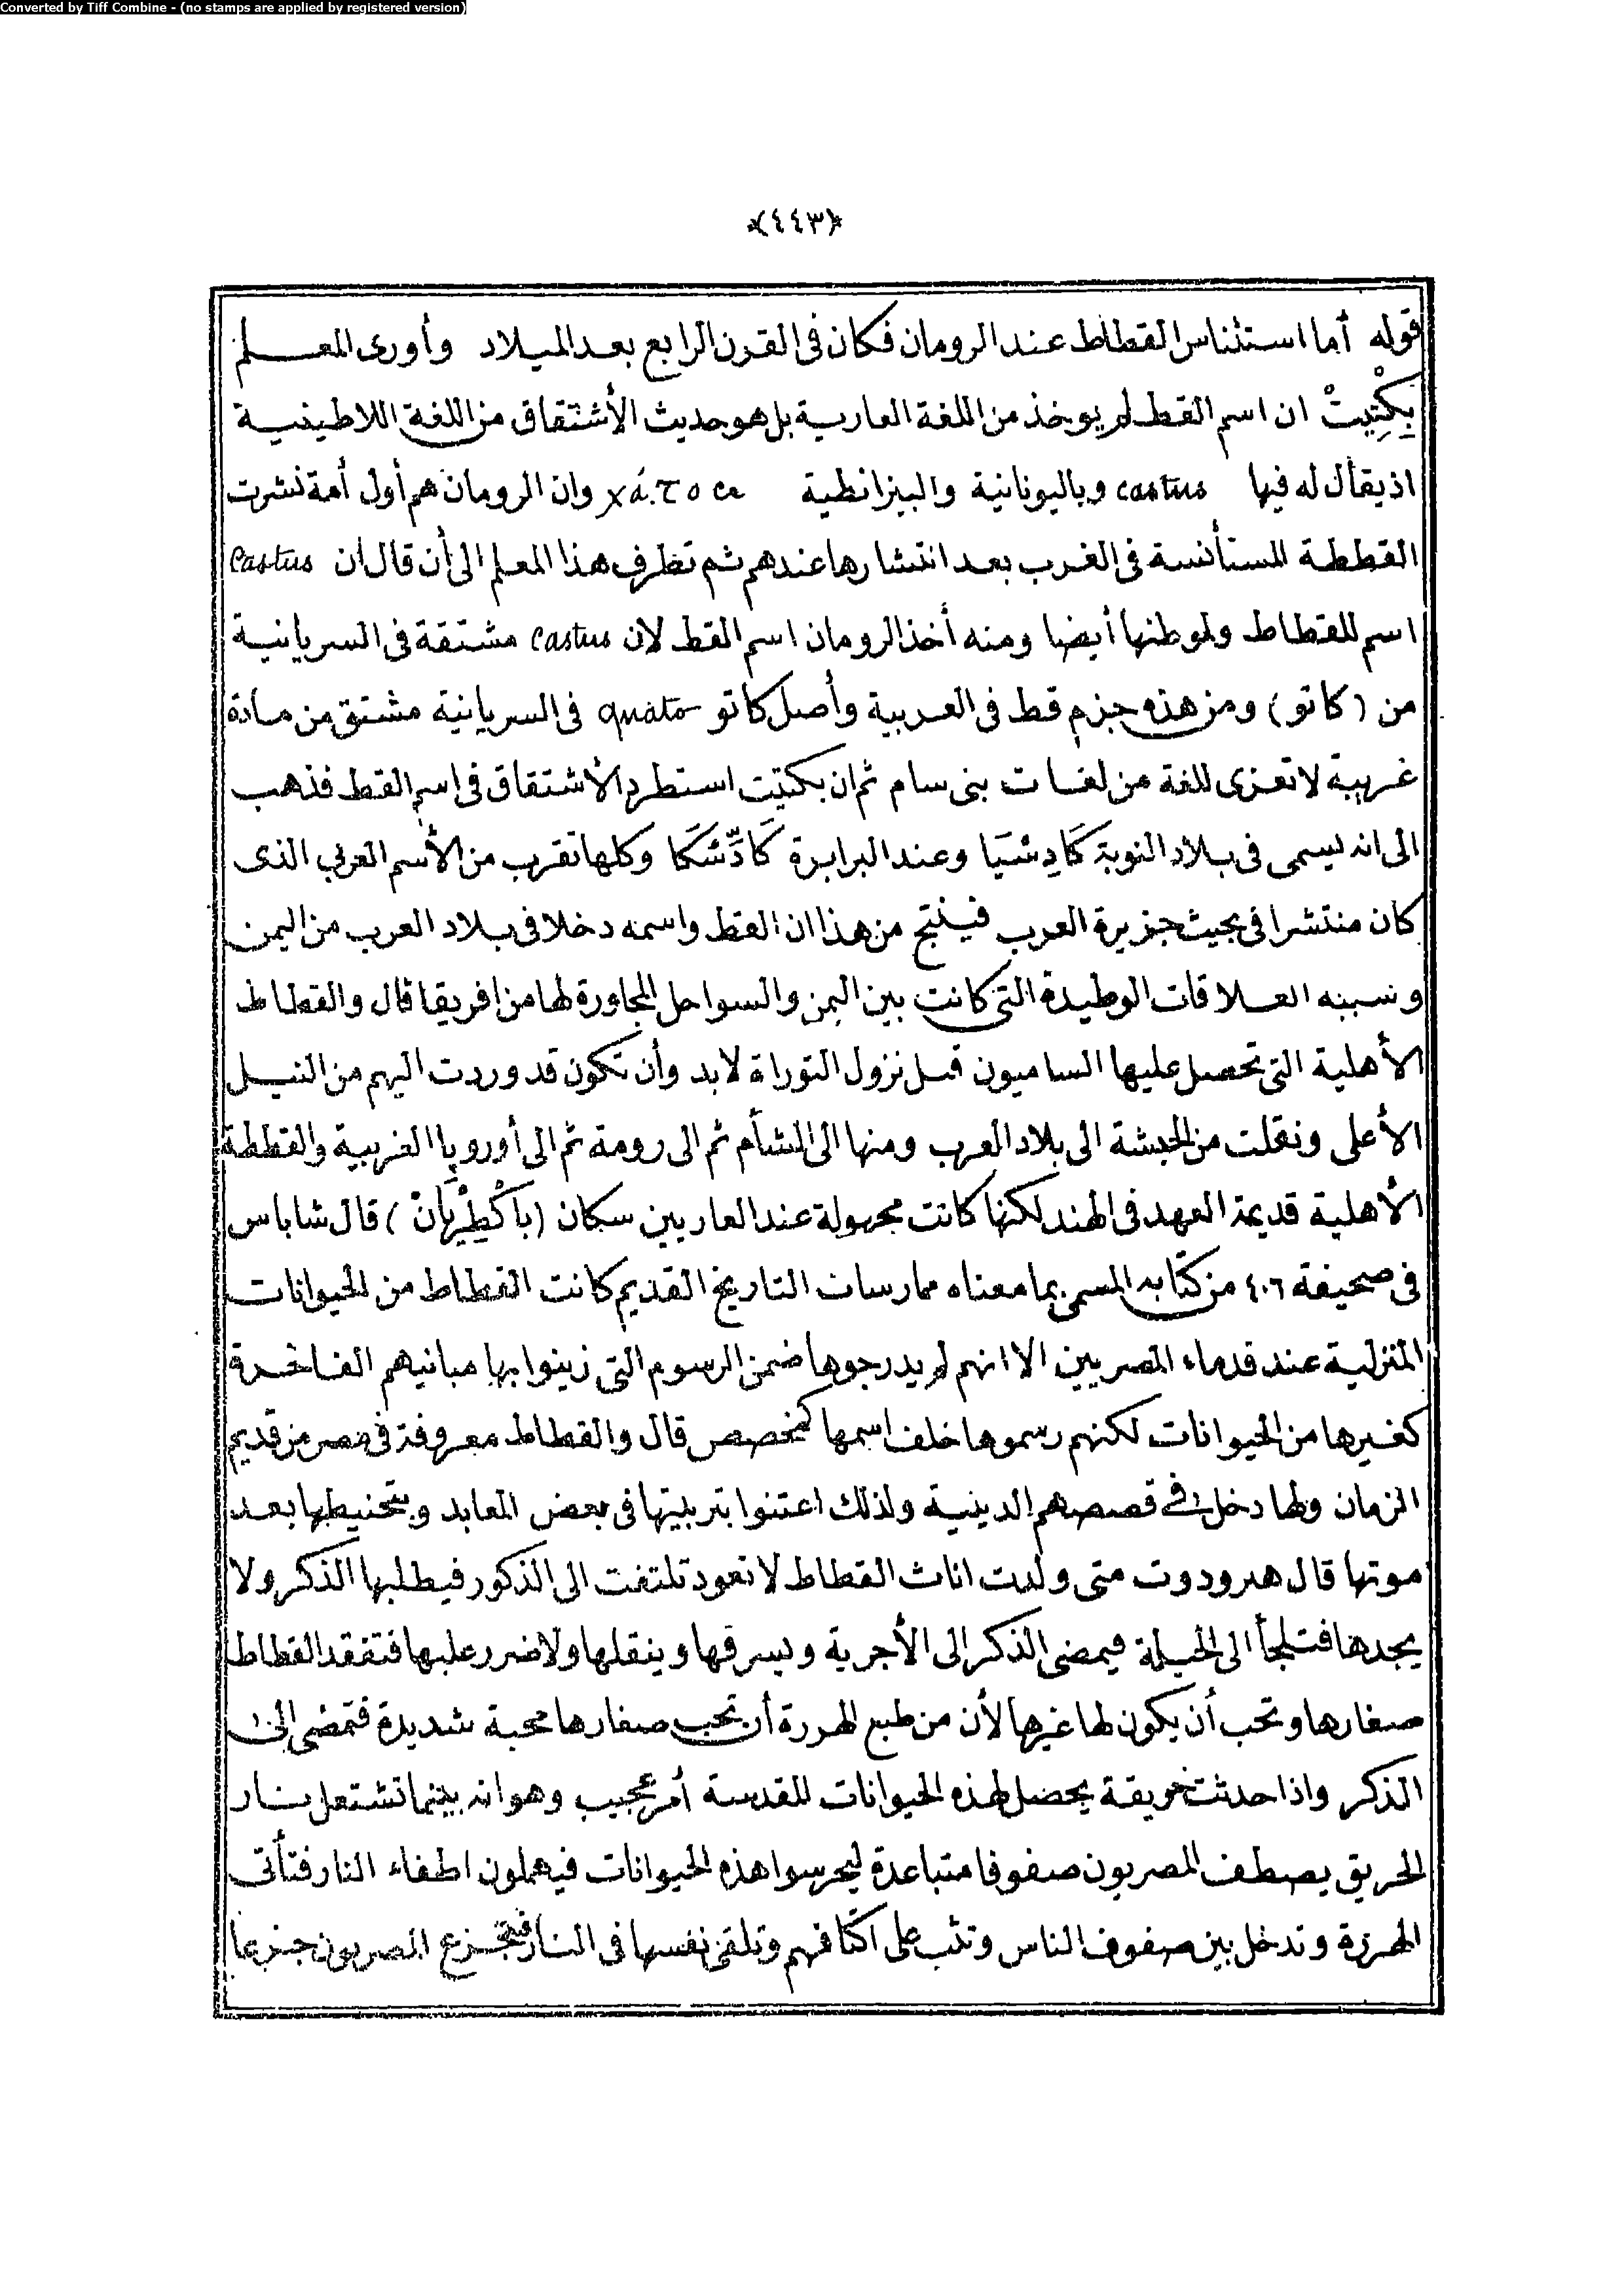 Converted by Tiff Combine - (no stamps are applied by registered version)
﴿٤٤٣﴾
قوله أما استئناس القطاط عند الرومان فكان فى القرن الرابع بعد الميلاد وأورى المعلم
بِكْتِيتْ ان اسم القط لم يوخذ من اللغة العارية بل هو حديث الأشتقاق من اللغة اللاطينية
اذ يقال له فيها castus وباليونانية والبيزانطية وان الرومان هم أول أمة نشرت
القططة المستأنسة فى الغرب بعد انتشارها عندهم ثم تطرف هذا المعلم الى أن قال ان Castus
اسم للقطاط ولموطنها أيضا ومنه أخذ الرومان اسم القط لان castus مشتقة فى السريانية
من (كاتو) ومن هذه جزم قط فى العربية وأصل كاتو quato فى السريانية مشتق من مادة
غريبة لا تعزى للغة من لغات بنى سام ثم ان بكتيت استطرد الأشتقاق فى اسم القط فذهب
الى انه يسمى فى بلاد النوبة كَادِشيَا وعند البرابرة كَادِّشكَا وكلها تقرب من الأسم العربى الذى
كان منتشرا فى بحيث جزيرة العرب فينتج من هذا ان القط واسمه دخلا فى بلاد العرب من اليمن
وسببه العلاقات الوطيدة التى كانت بين اليمن والسواحل المجاورة لها من افريقا قال والقطاط
الأهلية التى تحصل عليها الساميون قبل نزول التوراة لابد وأن تكون قد وردت اليهم من النيل
الأعلى ونقلت من الحبشة الى بلاد العرب ومنها الى الشأم ثم الى رومة ثم الى أوروپا الغربية والقططة
الأهلية قديمة العهد فى الهند لكنها كانت مجهولة عند العاريين سكان (باكْطِرْيَانْ) قال شاباس
فى صحيفة ٤٠٦ من كتابه المسمى بما معناه ممارسات التاريخ القديم كانت القطاط من الحيوانات
المنزلية عند قدماء المصريين الا انهم لم يدرجوها ضمن الرسوم التى زينوا بها مبانيهم الفاخرة
كغيرها من الحيوانات لكنهم رسموها خلف اسمها كمخصص قال والقطاط معروفة فى مصر من قديم
الزمان ولها دخل فى قصصهم الدينية ولذلك اعتنوا بتربيتها فى بعض المعابد وبتحنيطها بعد
موتها قال هيرودوت متى ولدت اناث القطاط لا تعود تلتفت الى الذكور فيطلبها الذكر ولا
يجدها فتلجأ الى الحيلة فيمضى الذكر الى الأجرية ويسرقها وينقلها ولا ضرر عليها فتفقد القطاط
صغارها وتحب أن يكون لها غيرها لأن من طبع الهررة أن تحب صغارها محبة شديدة فتمضى الى
الذكر واذا حدثت حريقة يحصل لهذه الحيوانات المقدسة أمر عجيب وهو انه بينما تشتعل نار
الحريق يصطف المصريون صفوفا متباعدة ليحرسوا هذه الحيوانات فيهملون اطفاء النار فتأتى
الهررة وتدخل بين صفوف الناس وتثب على اكتافهم وتلقى نفسها فى النار فيجزع المصريون جزعا